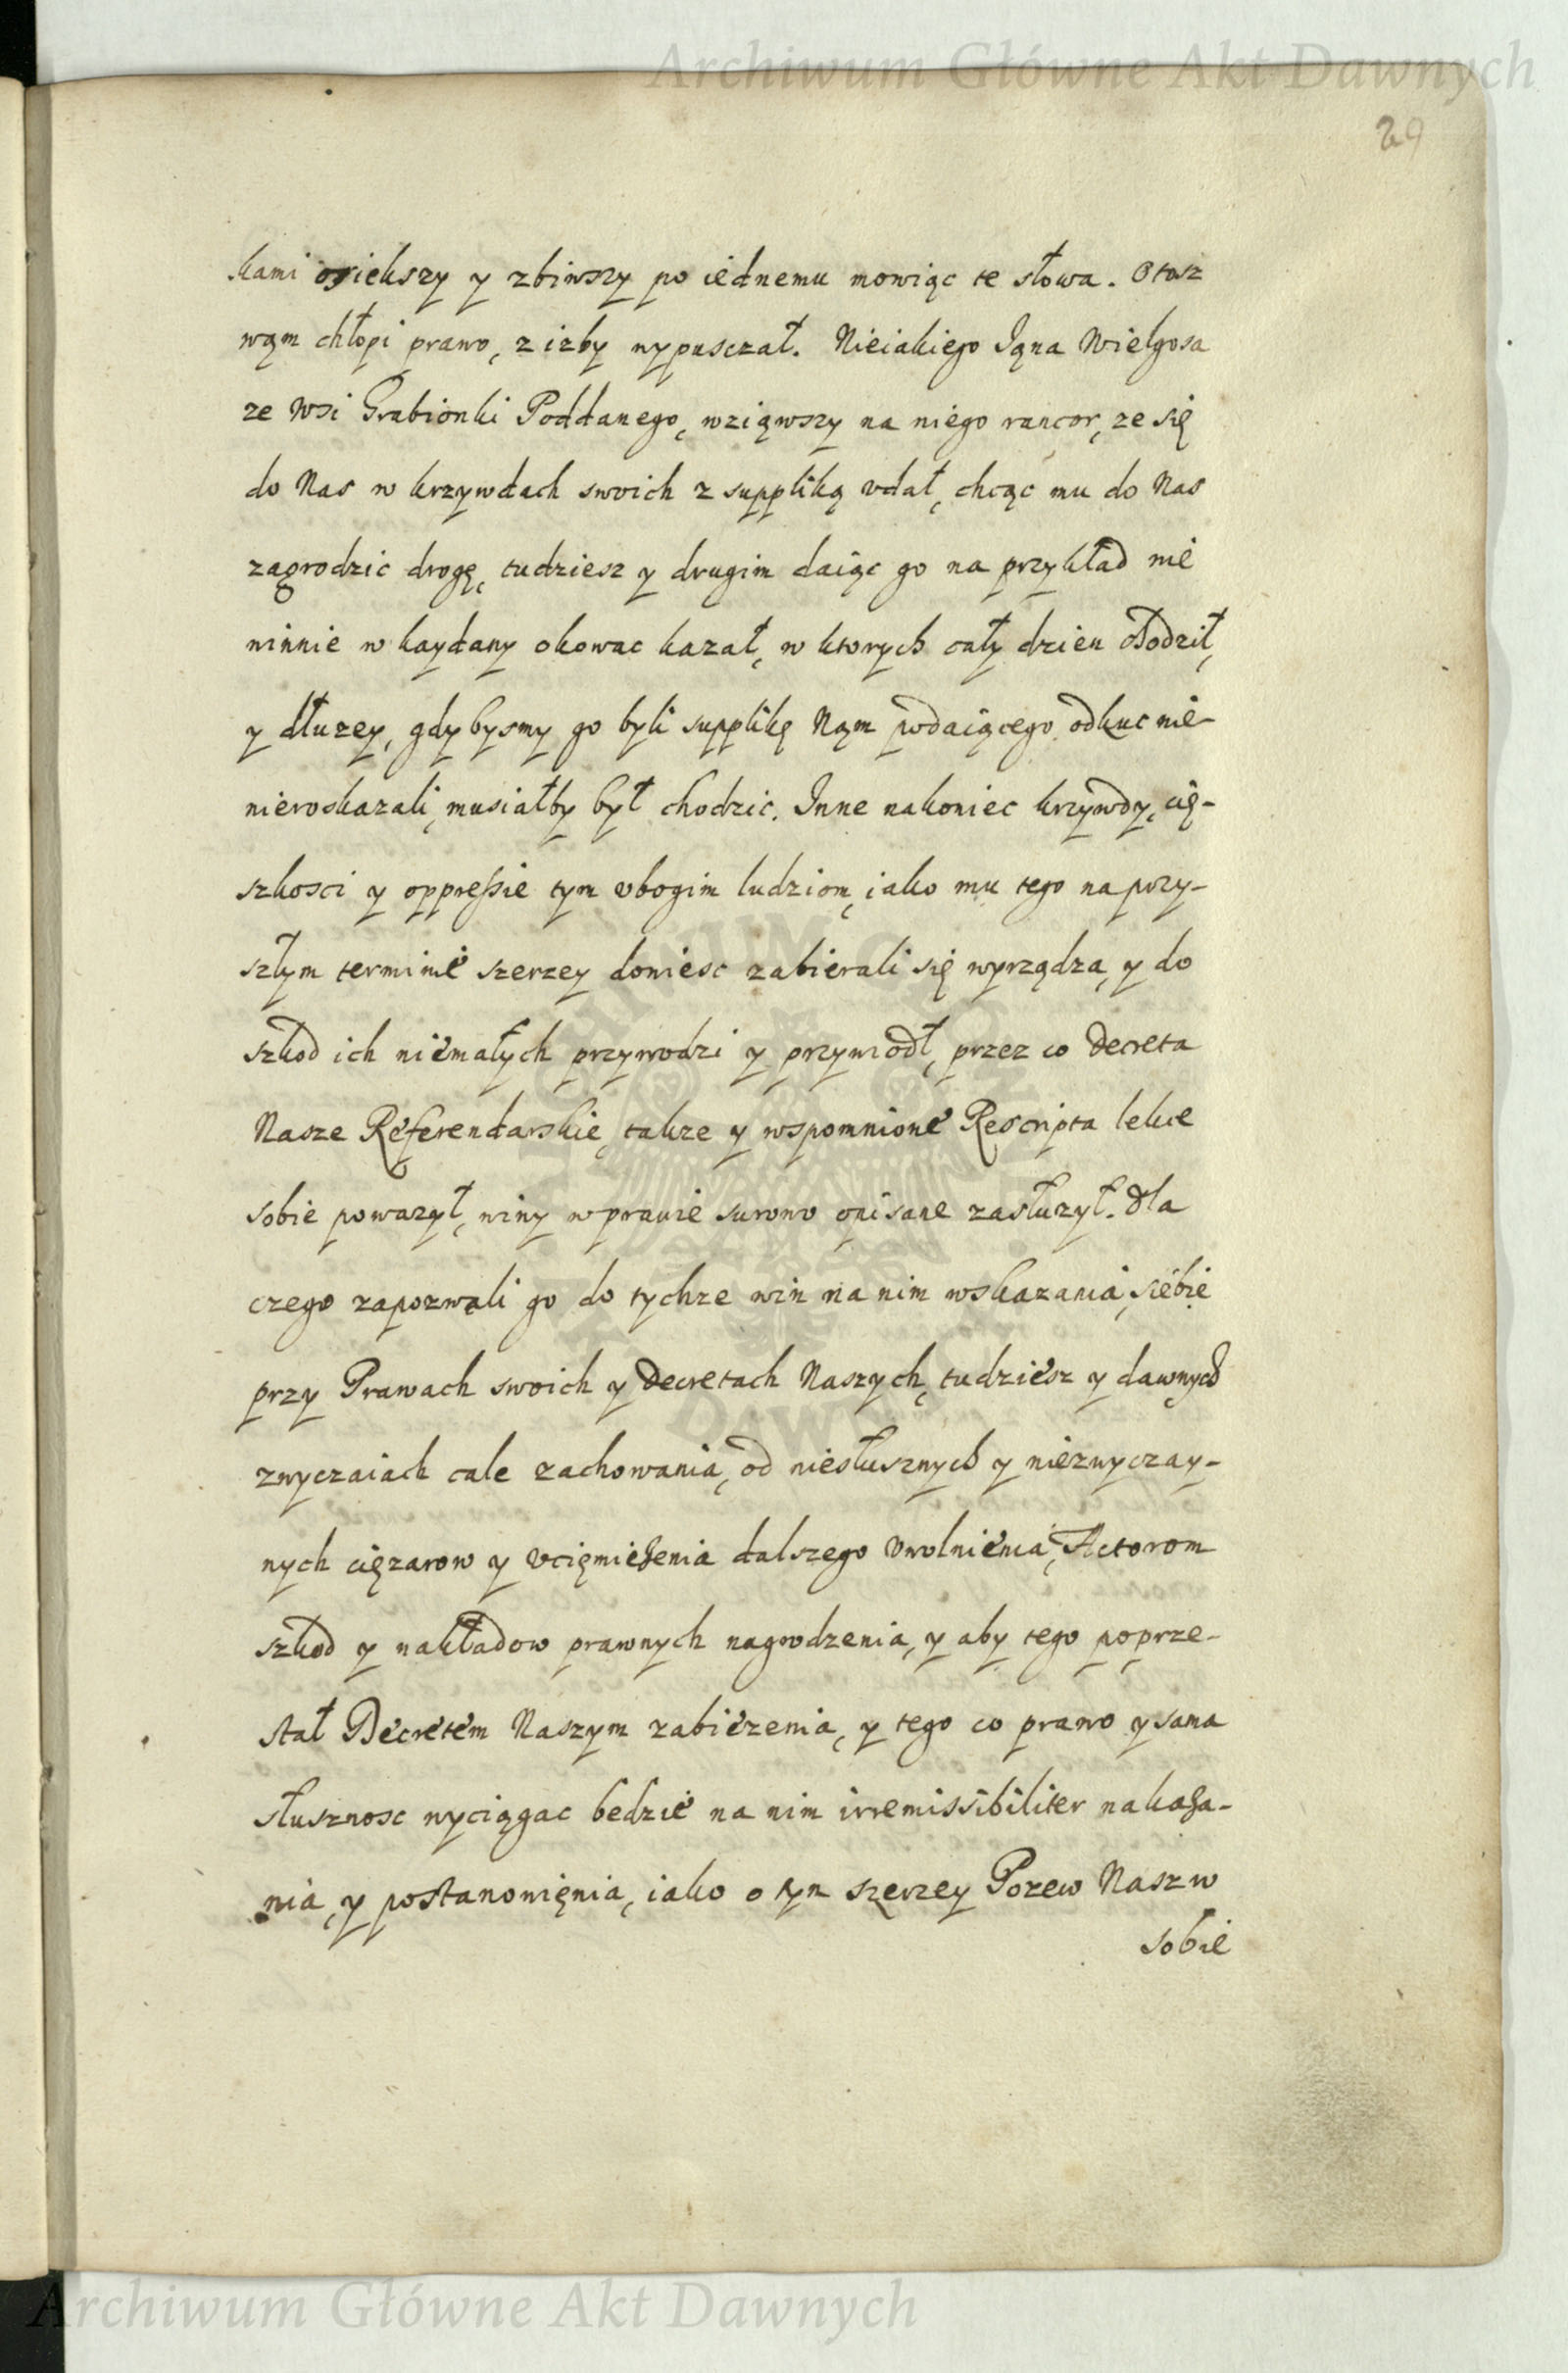 Archiwum Główne Akt Dawnych
29
kami osiekszy y zbiwszy po iednemu mowiąc te słowa. Otosz
wąm chłopi prawo, z izby wypusczał. Nieiakiego Iąna Wielgosa
ze Wsi Grabionki Poddanego, wziąwszy na niego rancor, ze się
do Nas w krzywdach swoich z suppliką vdał, chcąc mu do Nas
zagrodzic drogę, tudziesz y drugim daiąc go na przykład nie
winnie w kaydany okowac kazał, w ktorych cały dzien chodził,
y dłuzey, gdybysmy go byli supplikę Nąm podaiącego odkuc nie-
nieroskazali, musiałby był chodzic. Inne nakoniec krzywdy, cię-
szkosci y oppressie tym vbogim ludziom, iako mu tego na przy-
szłym terminie szerzey doniesc zabierali się wyrządza, y do
szkod ich niemałych przywodzi y przywiodł, przez co Decreta
Nasze Referendarskie, takze y wspomnione Rescripta lekce
sobie powazył, winy w prawie surowo opisane zasłuzył. Dla
czego zapozwali go do tychze win na nim wskazania, siebie
przy Prawach swoich y Decretach Naszych, tudziesz y dawnych
zwyczaiach cale zachowania, od niesłusznych y niezwyczay-
nych cięzarow y vcięmiezenia dalszego vwolnienia, Actorom
szkod y nakładow prawnych nagrodzenia, y aby tego poprze-
stał Decretem Naszym zabiezenia, y tego co prawo y sama
słusznosc wyciągac bedzie na nim irremissibiliter nakaza-
nia, y postanowięnia, iako o tym szerzey Pozew Nasz w
sobie
Archiwum Główne Akt Dawnych